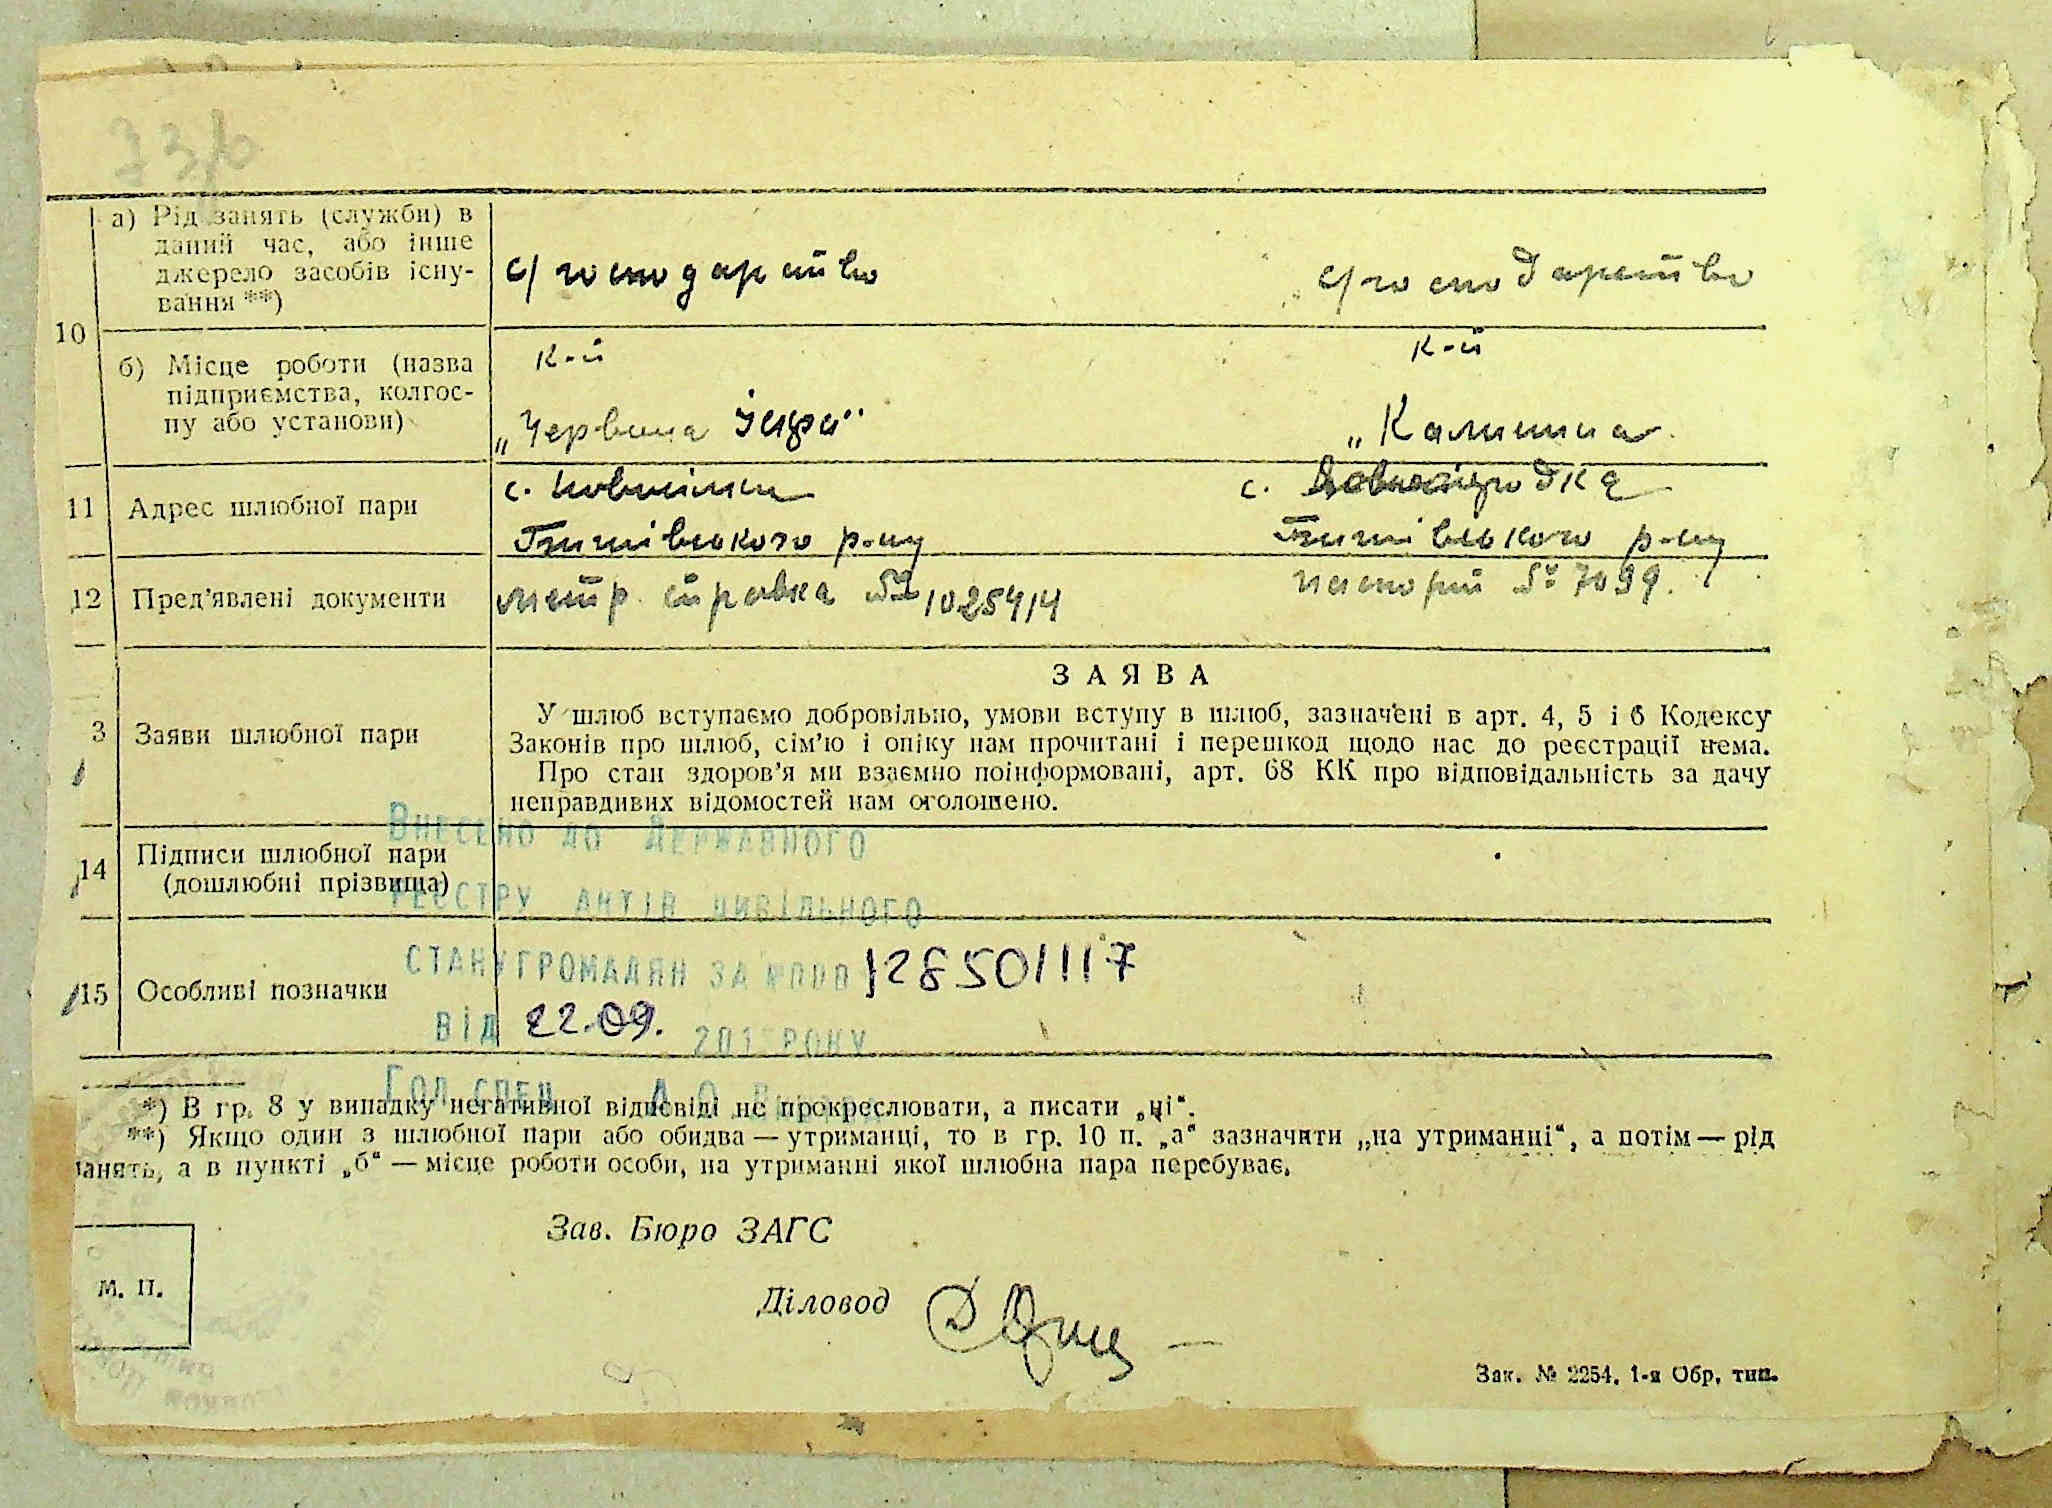 а) Рід занять (служби) в
даний час, або інше
джерело засобів існу-
вання **)
с/господарство
с/господарство
10
б) Місце роботи (назва
підприємства, колгос-
пу або установи)
к-п
к-п
„Червона
„Калинина
11
Адрес шлюбної пари
с.
с.
р-ну
р-ну
12
Пред’явлені документи
метр. справка № 1025414
паспорт № 7099.
ЗАЯВА
3
Заяви шлюбної пари
У шлюб вступаємо добровільно, умови вступу в шлюб, зазначені в арт. 4, 5 і 6 Кодексу
Законів про шлюб, сім’ю і опіку нам прочитані і перешкод щодо нас до реєстрації нема.
Про стан здоров’я ми взаємно поінформовані, арт. 68 КК про відповідальність за дачу
неправдивих відомостей нам оголошено.
Внесено до Державного
14
Підписи шлюбної пари
(дошлюбні прізвища)
реєстру актів цивільного
стану громадян за 128501117
15
Особливі позначки
від 22.09. 201 року
Гол.спец
*) В гр. 8 у випадку негативної відповіді не прокреслювати, а писати „ні“.
**) Якщо один з шлюбної пари або обидва — утриманці, то в гр. 10 п. „а“ зазначити „на утриманні“, а потім — рід
занять, а в пункті „б“ — місце роботи особи, на утриманні якої шлюбна пара перебуває.
Зав. Бюро ЗАГС
М. П.
Діловод
Зак. № 2254, 1-я Обр. тип.